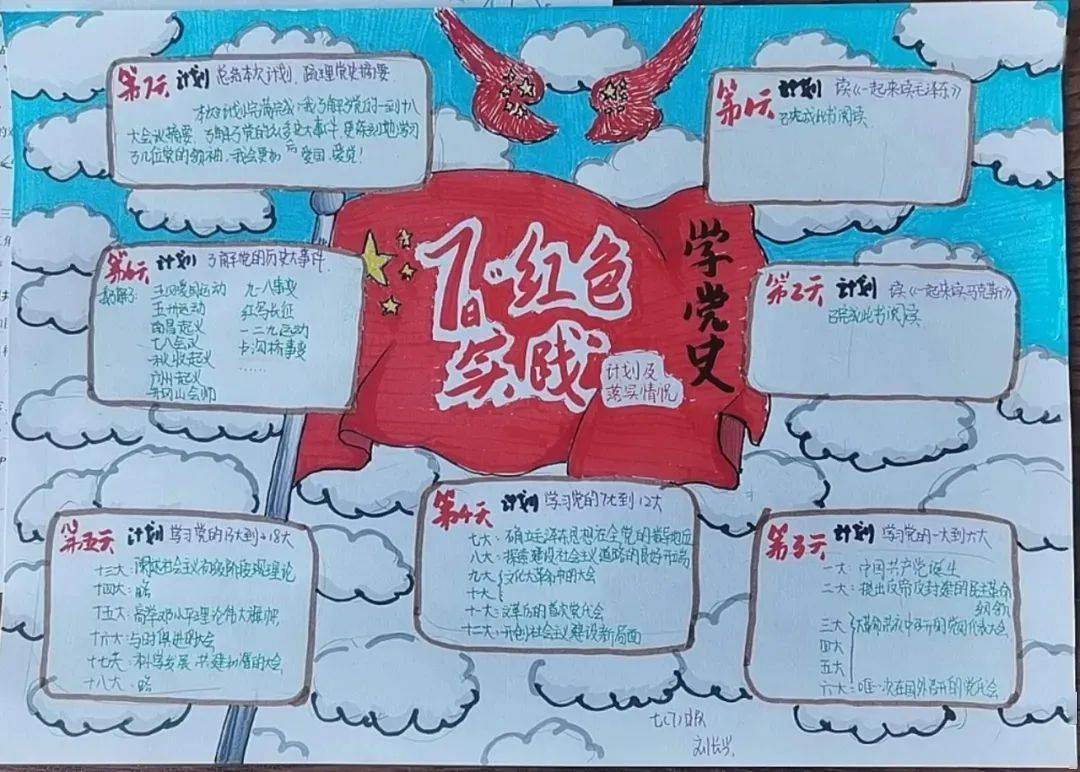 7日红色
实践
计划及
落实情况
学党史
第1天 计划 读《一起来读毛泽东》
已完成此书阅读
第2天 计划 读《一起来读马克斯》
已完成此书阅读
第3天 计划 学习党的一大到六大
一大:中国共产党诞生
二大:提出反帝反封建的民主革命
纲领
三大
四大
五大
大革命时期召开的党的代表大会
六大:唯一次在国外召开的党代会
第4天 计划 学习党的7大到12大
七大:确立毛泽东思想在全党的指导地位
八大:探索建设社会主义道路的良好开端
九大
十大
文化大革命中的大会
十一大:文革后的首次党代会
十二大:开创社会主义建设新局面
第五天 计划 学习党的13大到18大
十三大:阐述社会主义初级阶段理论
十四大:略
十五大:高举邓小平理论伟大旗帜
十六大:与时俱进的大会
十七大:科学发展 共建和谐的大会
十八大:略
第6天 计划 了解党的历史大事件
我了解了:
五四爱国运动
五卅运动
南昌起义
七八会议
秋收起义
广州起义
井冈山会师
九一八事变
红军长征
一二九运动
卡沟桥事变
……
第7天 计划 总结本次计划、梳理党史摘要
本次计划完满完成,我了解了党的一到十八
大会议摘要 了解了党的众多重大事件 更深刻地学习
了几位党的领袖,我会更加爱国、爱党!